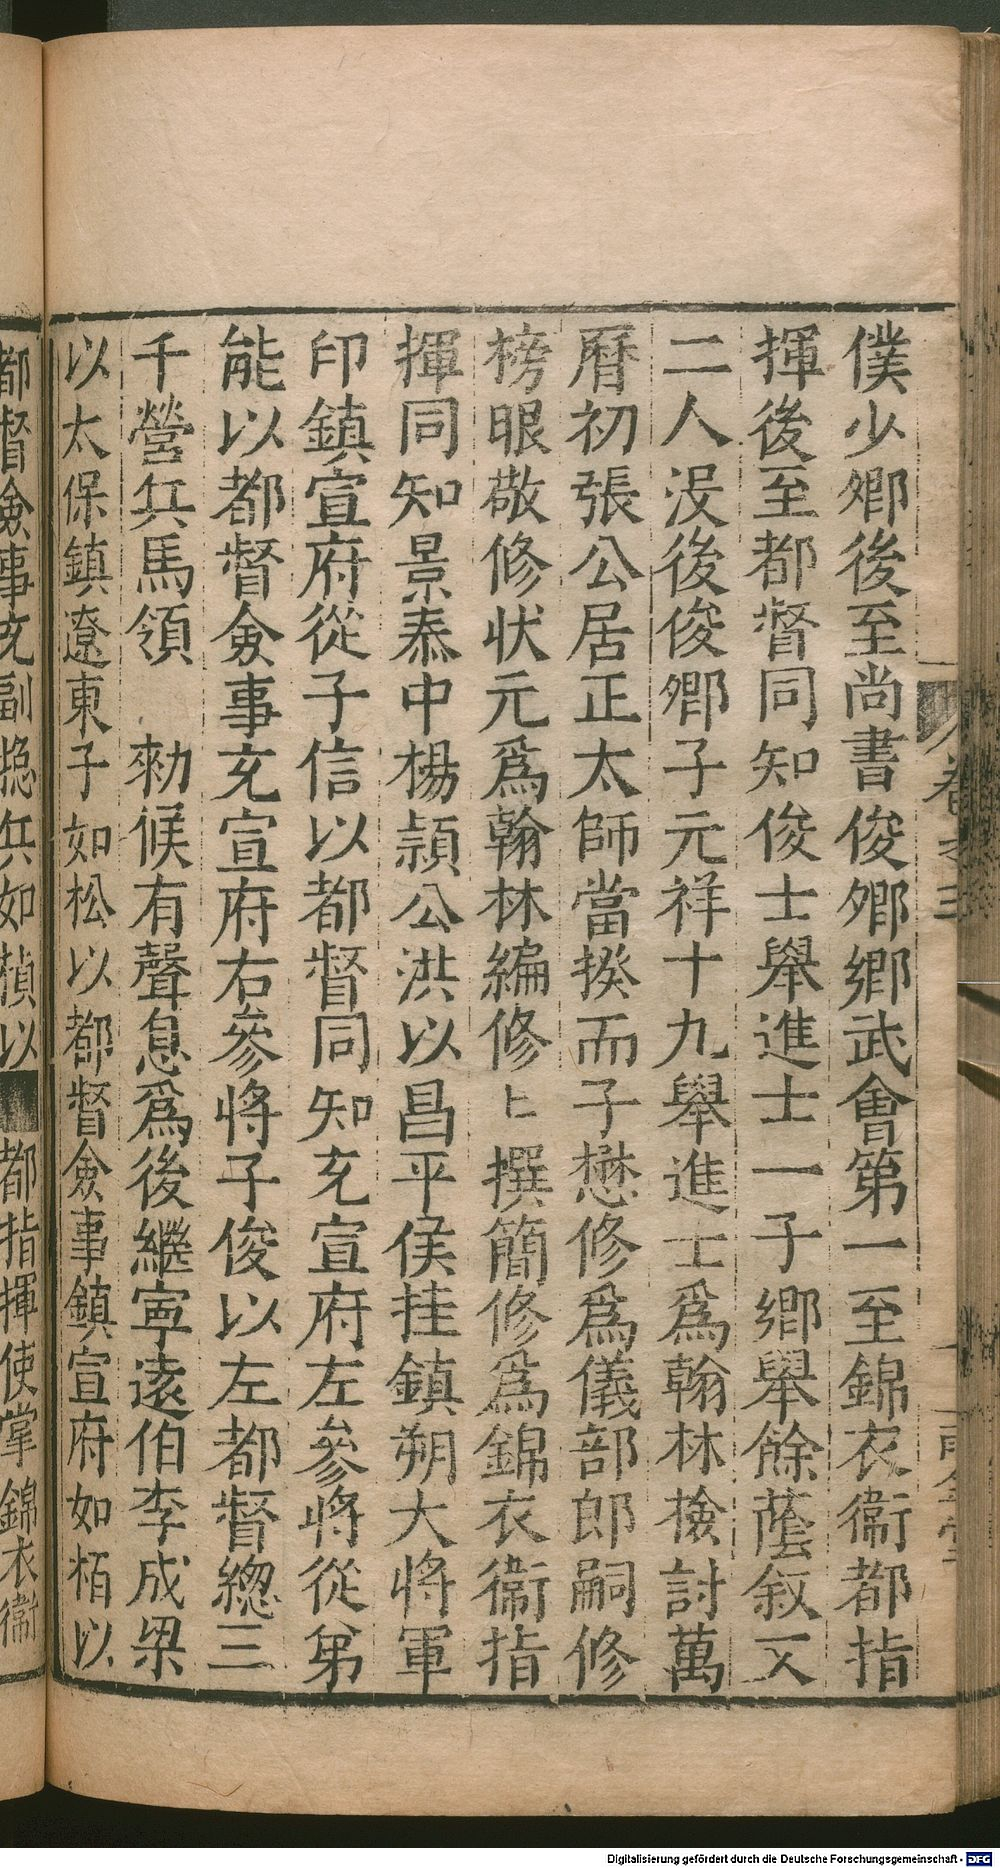 僕少卿後至尚書俊卿鄉武會第一至錦衣衞都指
揮後至都督同知俊士舉進士一子鄉舉餘蔭叙又
二人没後俊卿子元祥十九舉進士爲翰林檢討萬
曆初張公居正太師當揆而子懋修爲儀部郎嗣修
榜眼敬修狀元爲翰林編修上撰簡修爲錦衣衞指
揮同知景泰中楊頴公洪以昌平侯挂鎮朔大將軍
印鎮宣府從子信以都督同知充宣府左參將從弟
能以都督僉事充宣府右參將子俊以左都督總三
千營兵馬領　勑候有聲息爲後繼寧遠伯李成梁
以太保鎮遼東子如松以都督僉事鎮宣府如栢以
都督僉事充副總兵如楨以　都指揮使掌錦衣衞
卷之三
Digitalisierung gefördert durch die Deutsche Forschungsgemeinschaft - DFG